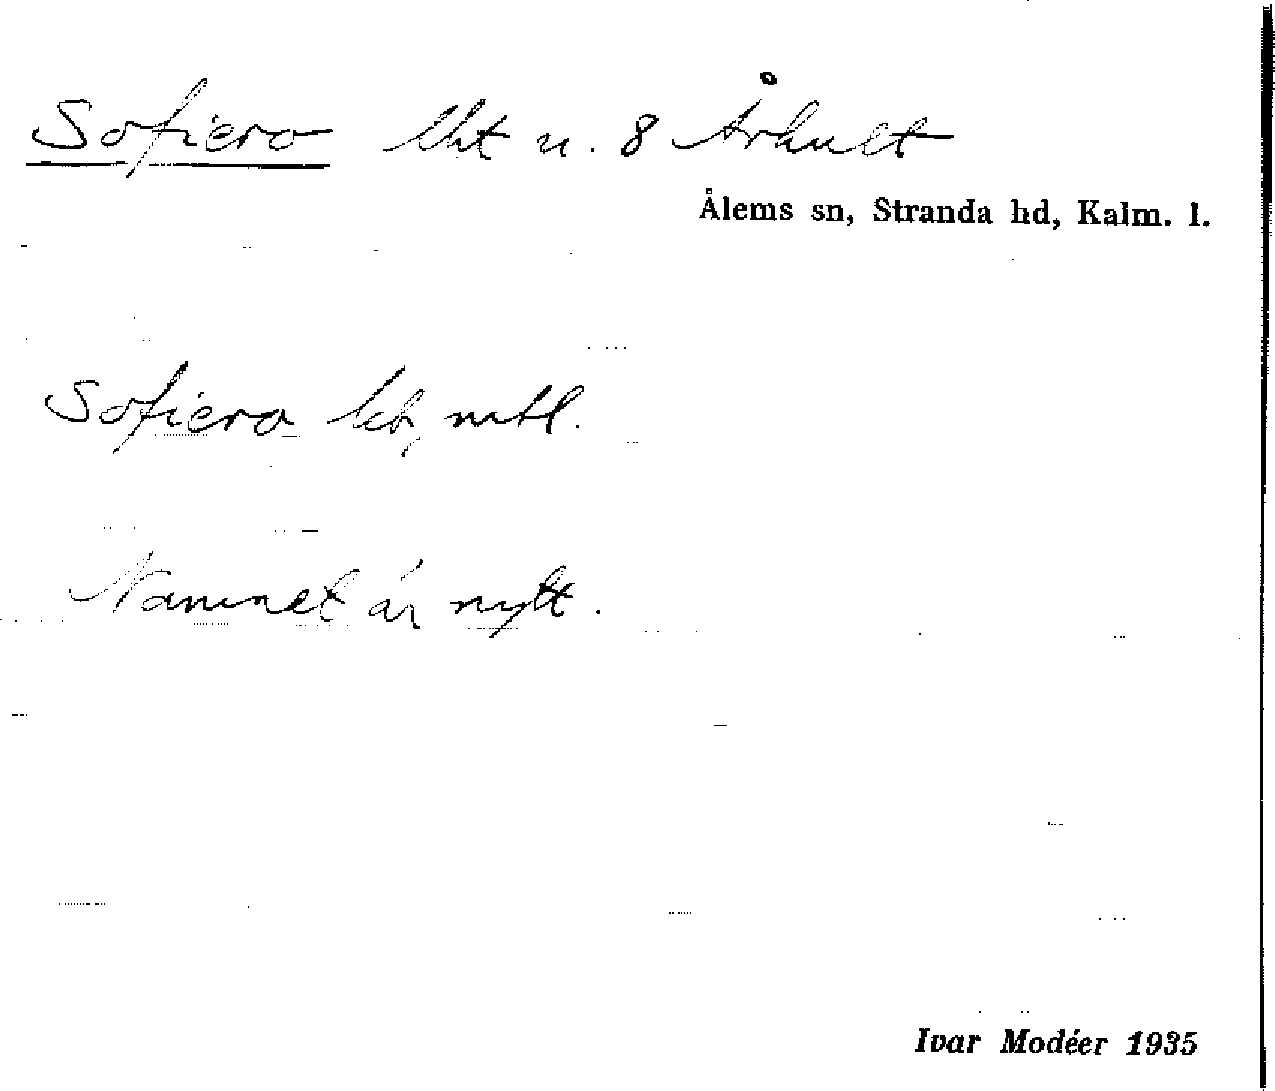 Sofiero lht u. 8 Århult
Ålems sn, Stranda hd, Kalm. l.
Sofiero kb, mtl.
Namnet är nytt.
Ivar Modéer 1935